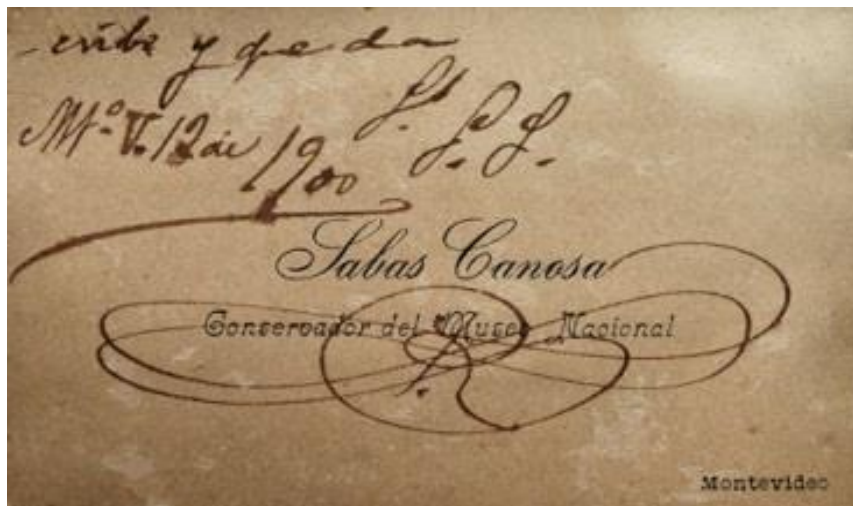 -cribe y queda
S. S. S.
Mº Vº 12 de
1900
Sabas Canosa
Conservador del Museo Nacional
Montevideo